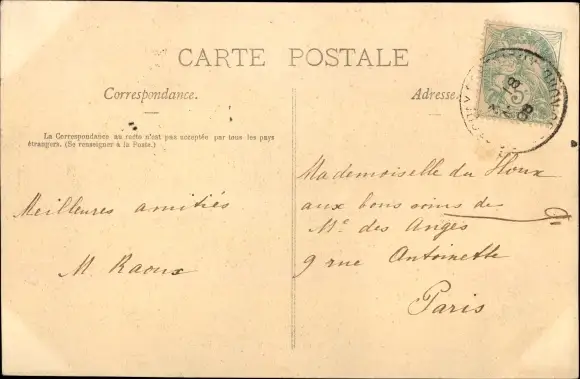 CARTE POSTALE
Correspondance.
Adresse.
La Correspondance au recto n'est pas acceptée par tous les pays
étrangers. (Se renseigner à la Poste.)
Meilleures amitiés
M. Raoux
Mademoiselle du Houx
aux bons soins de
Me des Anges
9 rue Antoinette
Paris